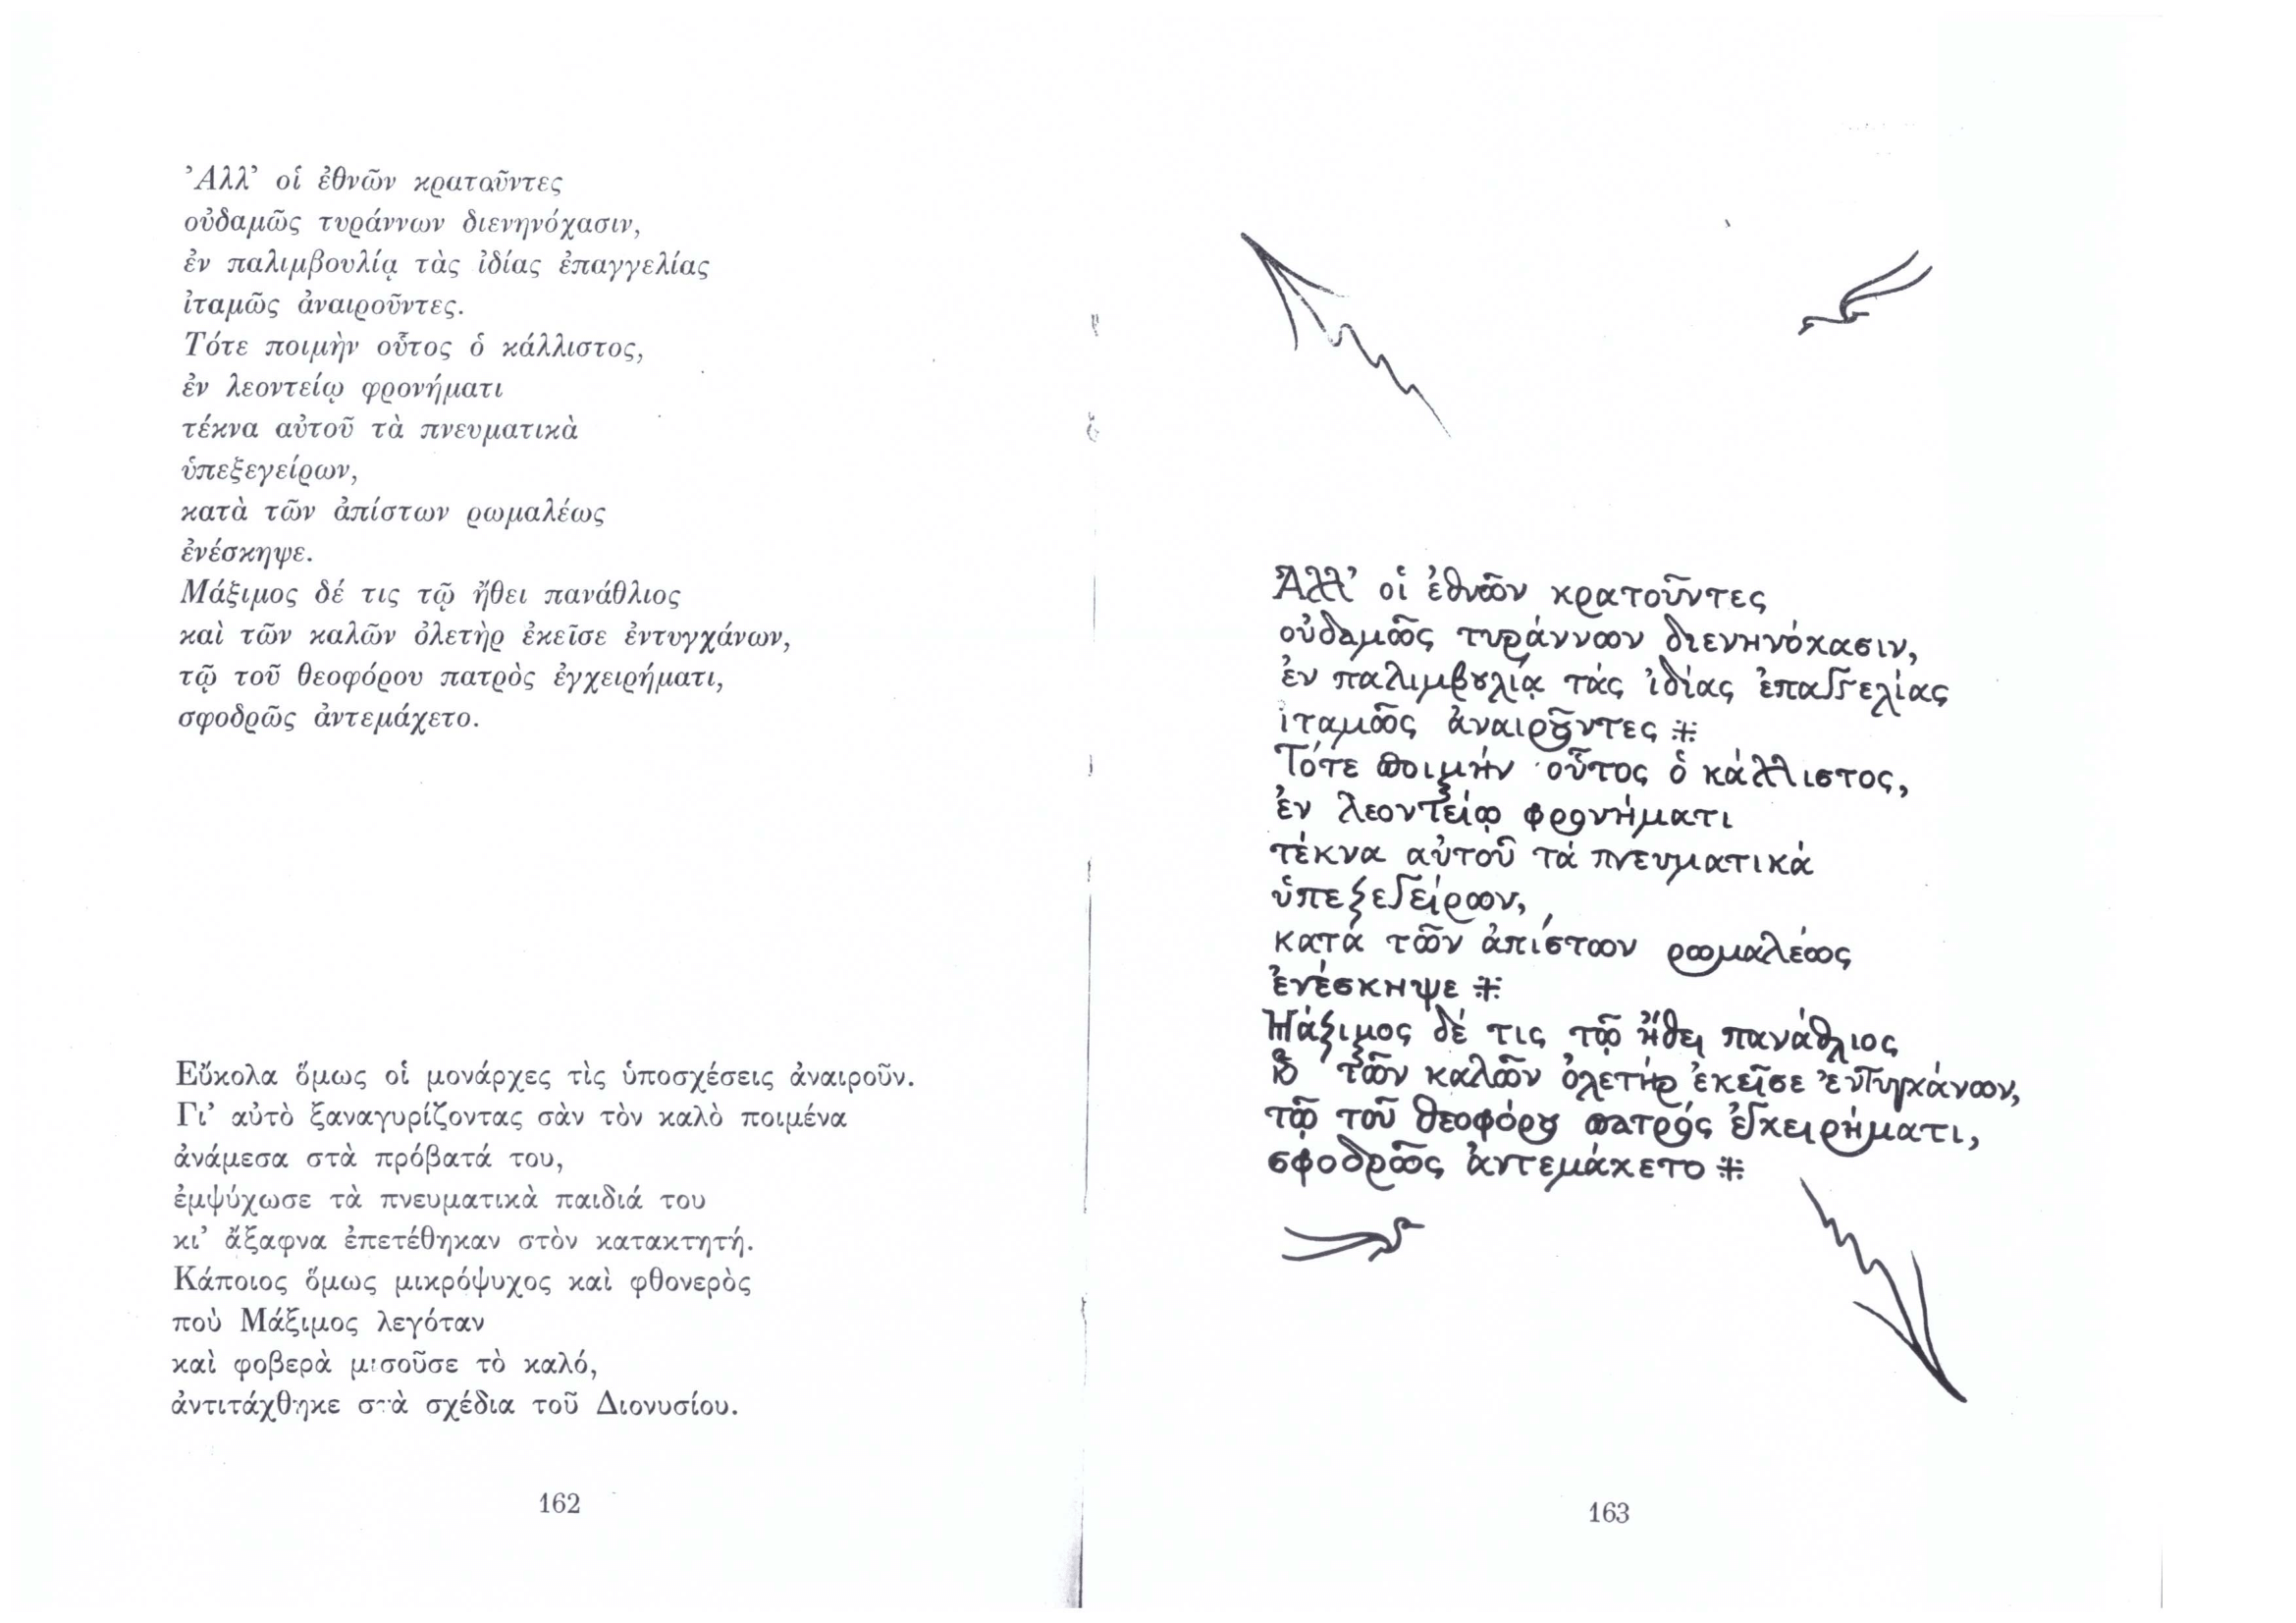 Ἀλλ’ οἱ ἐθνῶν κρατοῦντες
οὐδαμῶς τυράννων διενηνόχασιν,
ἐν παλιμβουλίᾳ τὰς ἰδίας ἐπαγγελίας
ἰταμῶς ἀναιροῦντες.
Τότε ποιμὴν οὗτος ὁ κάλλιστος,
ἐν λεοντείῳ φρονήματι
τέκνα αὐτοῦ τὰ πνευματικὰ
ὑπεξεγείρων,
κατὰ τῶν ἀπίστων ρωμαλέως
ἐνέσκηψε.
Μάξιμος δέ τις τῷ ἤθει πανάθλιος
καὶ τῶν καλῶν ὀλετὴρ ἐκεῖσε ἐντυγχάνων,
τῷ τοῦ θεοφόρου πατρὸς ἐγχειρήματι,
σφοδρῶς ἀντεμάχετο.
Εὔκολα ὅμως οἱ μονάρχες τὶς ὑποσχέσεις ἀναιροῦν.
Γι’ αὐτὸ ξαναγυρίζοντας σὰν τὸν καλὸ ποιμένα
ἀνάμεσα στὰ πρόβατά του,
ἐμψύχωσε τὰ πνευματικὰ παιδιά του
κι’ ἄξαφνα ἐπετέθηκαν στὸν κατακτητή.
Κάποιος ὅμως μικρόψυχος καὶ φθονερὸς
ποὺ Μάξιμος λεγόταν
καὶ φοβερὰ μισοῦσε τὸ καλό,
ἀντιτάχθηκε στὰ σχέδια τοῦ Διονυσίου.
162
Ἀλλ’ οἱ ἐθνῶν κρατοῦντες
οὐδαμῶς τυράννων διενηνόχασιν,
ἐν παλιμβȣλίᾳ τάς ἰδίας ἐπαγγελίας
ἰταμῶς ἀναιρȣ͂ντες ⁜
Τότε ποιμήν οὗτος ὁ κάλλιστος,
ἐν λεοντείῳ φρονήματι
τέκνα αὐτοῦ τά πνευματικά
ὑπεξεγείρων,
κατά τῶν ἀπίστων ρωμαλέως
ἐνέσκηψε ⁜
Μάξιμος δέ τις τῷ ἤθει πανάθλιος
ϗ τῶν καλῶν ὀλετήρ ἐκεῖσε ἐντυγχάνων,
τῷ τοῦ θεοφόρȣ πατρός ἐγχειρήματι,
σφοδρῶς ἀντεμάχετο ⁜
163